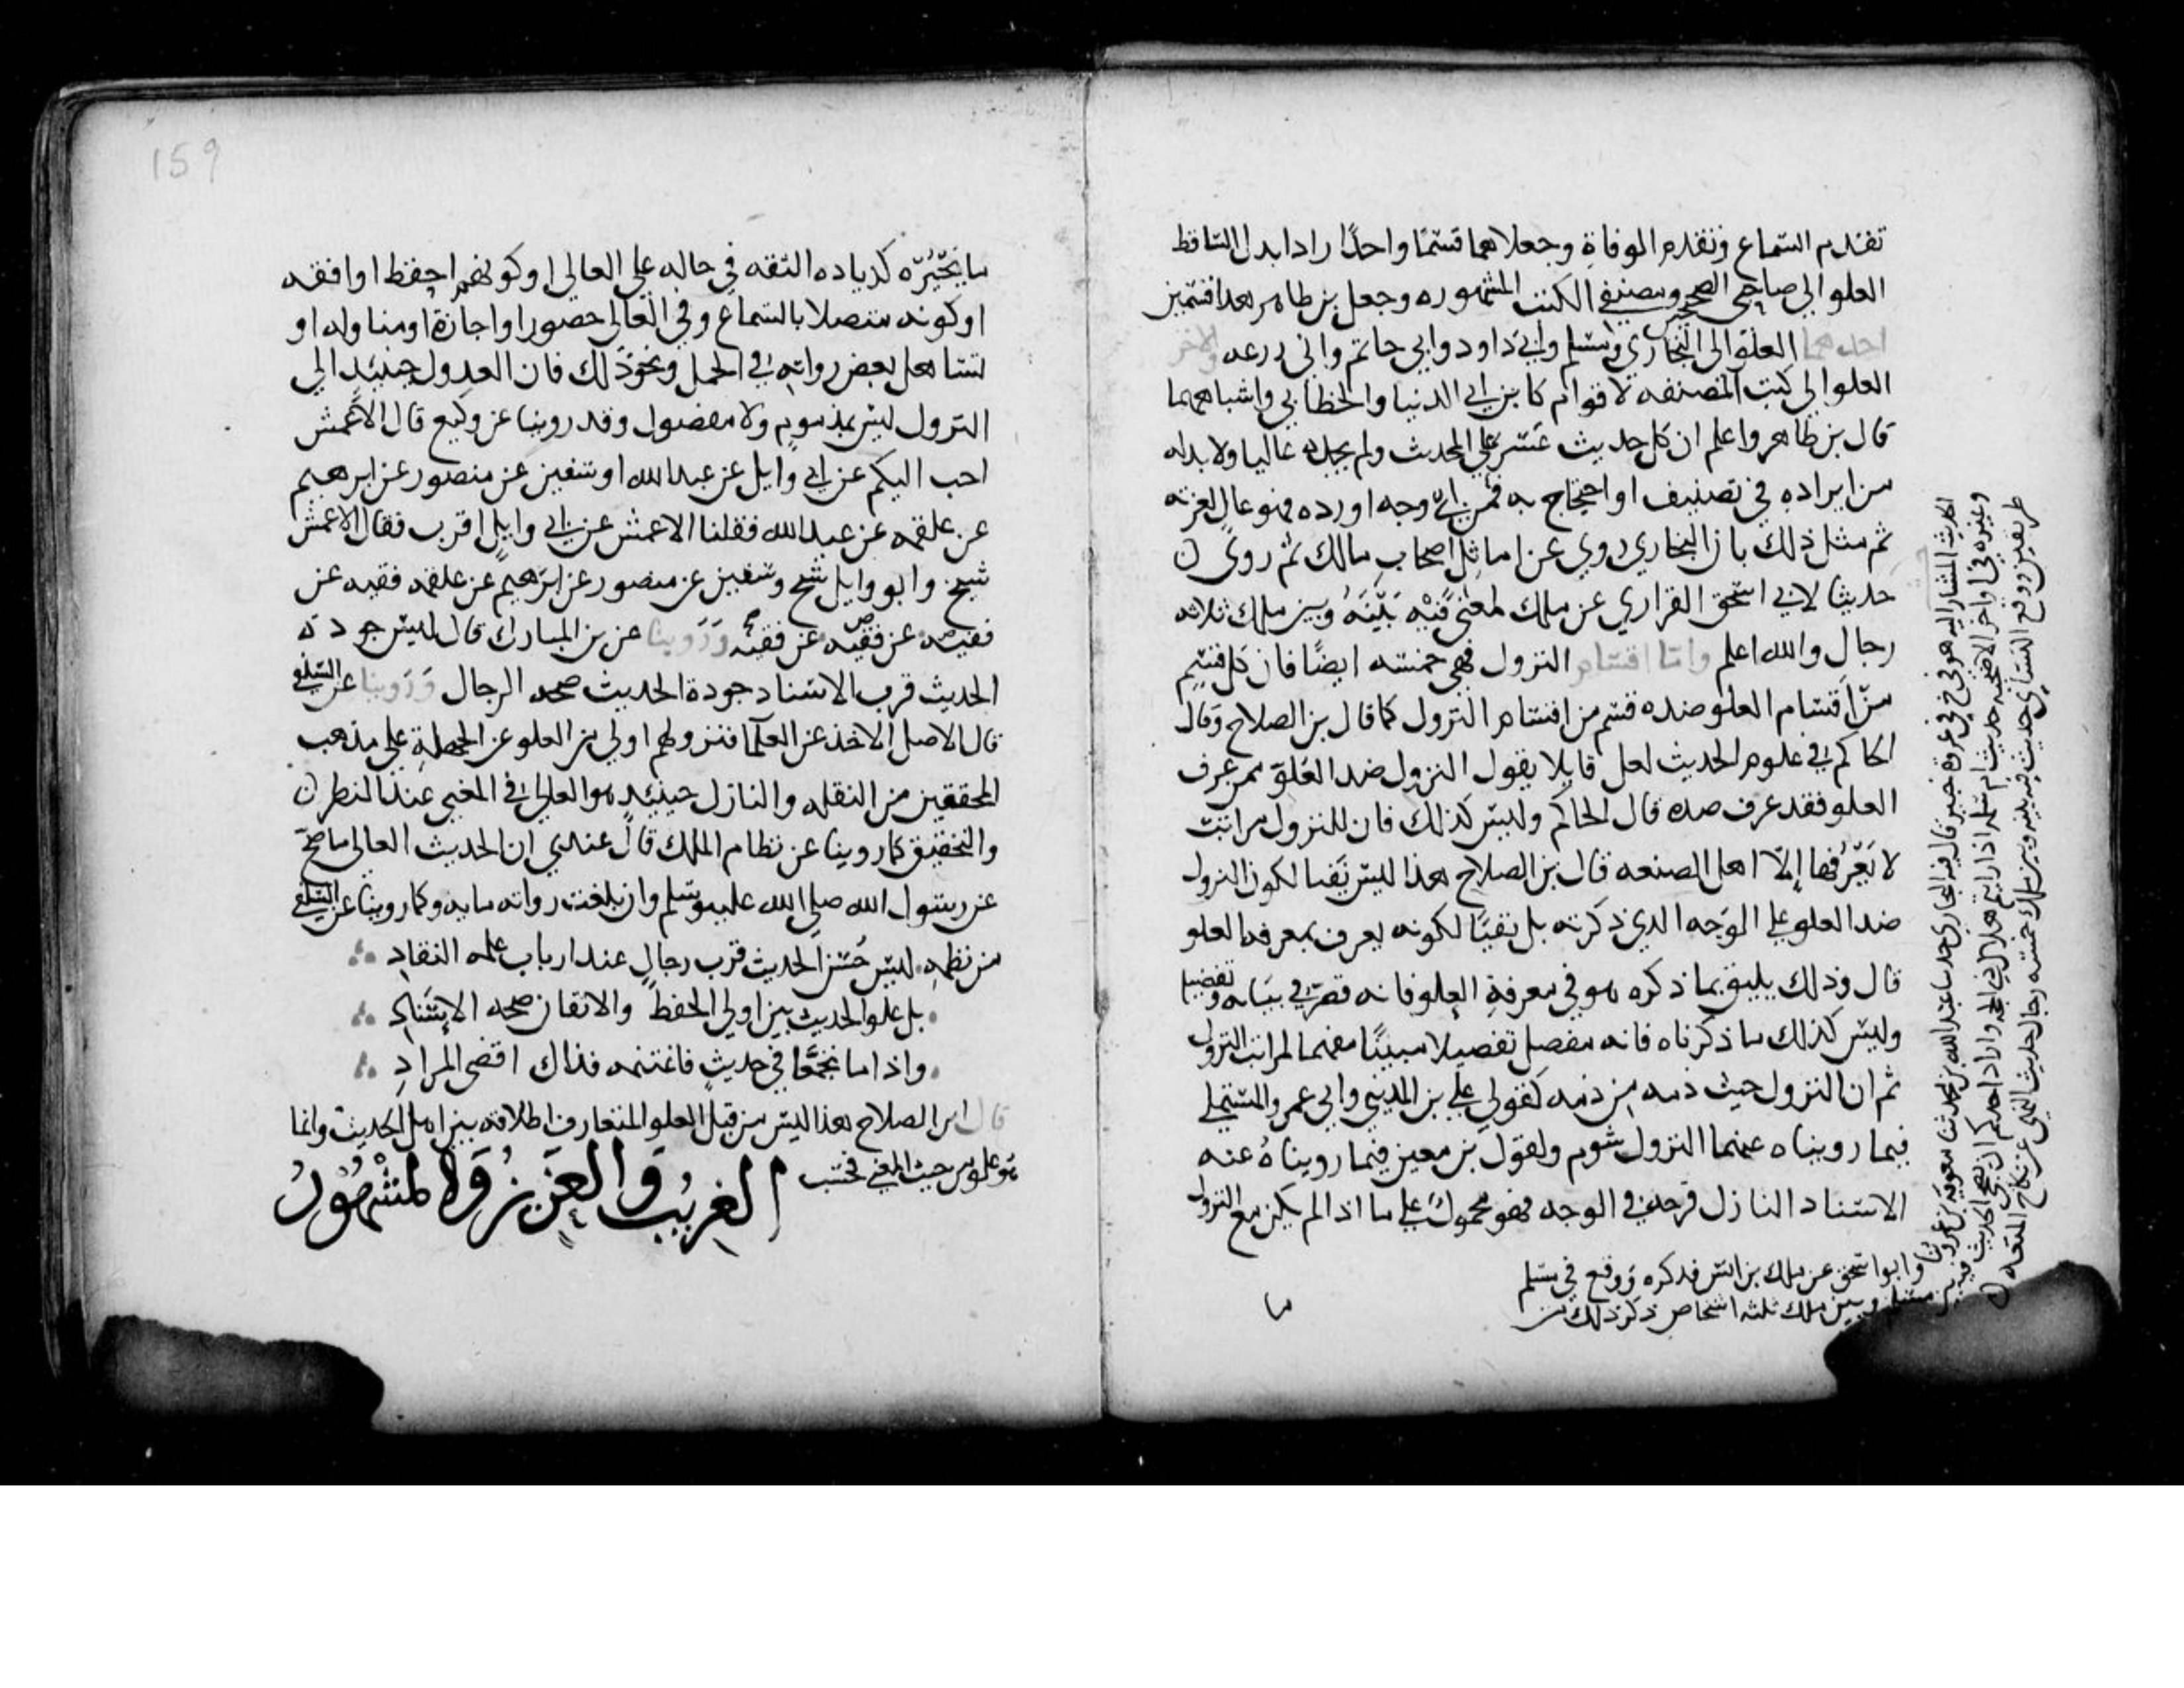 تقدم السماع وتقدم الوفاة وجعلاهما قسما واحدا زادا بدل الساقط
العلو الى صاحبي الصحيحين ومصنفي الكتب المشهوره وجعل بن طاهر هذا قسمين
احدهما العلو الى البخاري ومسلم وابي داود وابي حاتم وابي زرعه والاخر
العلو الى كتب المصنفه لاقوام كابن ابي الدنيا والخطابي واشباههما
قال بن طاهر واعلم ان كل حديث عسر على المحدث ولم يجده عاليا ولا بد له
من ايراده في تصنيف او احتجاج به فمن اي وجه اورده فهو عال لعزته
ثم مثل ذلك بان البخاري روى عن اماثل اصحاب مالك ثم روى
حديثا لابي اسحق الفزاري عن ملك لمعنى فيه بينه وبين ملك ثلاثه
رجال والله اعلم واما اقسام النزول فهي خمسه ايضا فان كل قسم
من اقسام العلو ضده قسم من اقسام النزول كما قال بن الصلاح وقال
الحاكم في علوم الحديث لعل قايلا يقول النزول ضد العلو فمن عرف
العلو فقد عرف ضده قال الحاكم وليس كذلك فان للنزول مراتب
لا يعرفها إلا اهل الصنعه قال بن الصلاح هذا ليس نفيا لكون النزول
ضد العلو على الوجه الذي ذكرته بل نفيا لكونه يعرف بمعرفه العلو
قال وذلك يليق بما ذكره هو في معرفة العلو فانه قصر في بيانه وتفصيله
وليس كذلك ما ذكرناه فانه مفصل تفصيلا مبينا مفهما لمراتب النزول
ثم ان النزول حيث ذمه من ذمه كقول علي بن المديني وابي عمرو المستملي
فيما رويناه عنهما النزول شوم ولقول بن معين فيما رويناه عنه
الاسناد النازل قرحه في الوجه فهو محمول على ما اذا لم يكن مع النزول
الحديث المشار اليه هو في غزوة خيبر قال فيه البخاري حدثنا عبد الله بن محمد ثنا معويه بن عمرو
ثنا ابو اسحق عن ملك بن انس فذكره ووقع في مسلم
وغيره في اواخر الاضحيه حديث ام سلمه اذا رايتم هلال ذي الحجه واراد احدكم ان يضحي الحديث فيه
بين مسلم وبين ملك ثلثه اشخاص ذكر ذلك من
طريقين ووقع للنسائي حديث فيه بينه وبين ملك خمسه رجال حديث النهي عن نكاح المتعه
ما
159
ما يجبره كزياده الثقه في رجاله على العالي او كونهم احفظ او افقه
او كونه متصلا بالسماع وفي العالي حضور او اجازة او مناوله او
تساهل بعض رواته في الحمل ونحو ذلك فان العدول حينئذ الى
النزول ليس بمذموم ولا مفضول وقد روينا عن وكيع قال الاعمش
احب اليكم عن ابي وايل عن عبد الله او سفين عن منصور عن ابرهيم
عن علقمه عن عبد الله فقلنا الاعمش عن ابي وايل اقرب فقال الاعمش
شيخ وابو وايل شيخ وسفين عن منصور عن ابرهيم عن علقمه فقيه عن
فقيه عن فقيه عن فقيه وروينا عن بن المبارك قال ليس جودة
الحديث قرب الاسناد جودة الحديث صحه الرجال وروينا عن السلفي
قال الاصل الاخذ عن العلما فنزولهم اولى من العلو عن الجهلة على مذهب
المحققين من النقله والنازل حينئذ هو العالي في المعنى عند النظر
والتحقيق كما روينا عن نظام الملك قال عندي ان الحديث العالي ما صح
عن رسول الله صلى الله عليه وسلم وان بلغت رواته مايه وكما روينا عن السلفي
من نظمه ليس حسن الحديث قرب رجال عند ارباب علمه النقاد
بل علو الحديث بين اولي الحفظ والاتقان صحه الإسناد
واذا ما تجمعا في حديث فاغتنمه فذاك اقصى المراد
قال ابن الصلاح هذا ليس من قبيل العلو المتعارف اطلاقه بين اهل الحديث وانما
هو علو من حيث المعنى فحسب الغريب والعزيز والمشهور